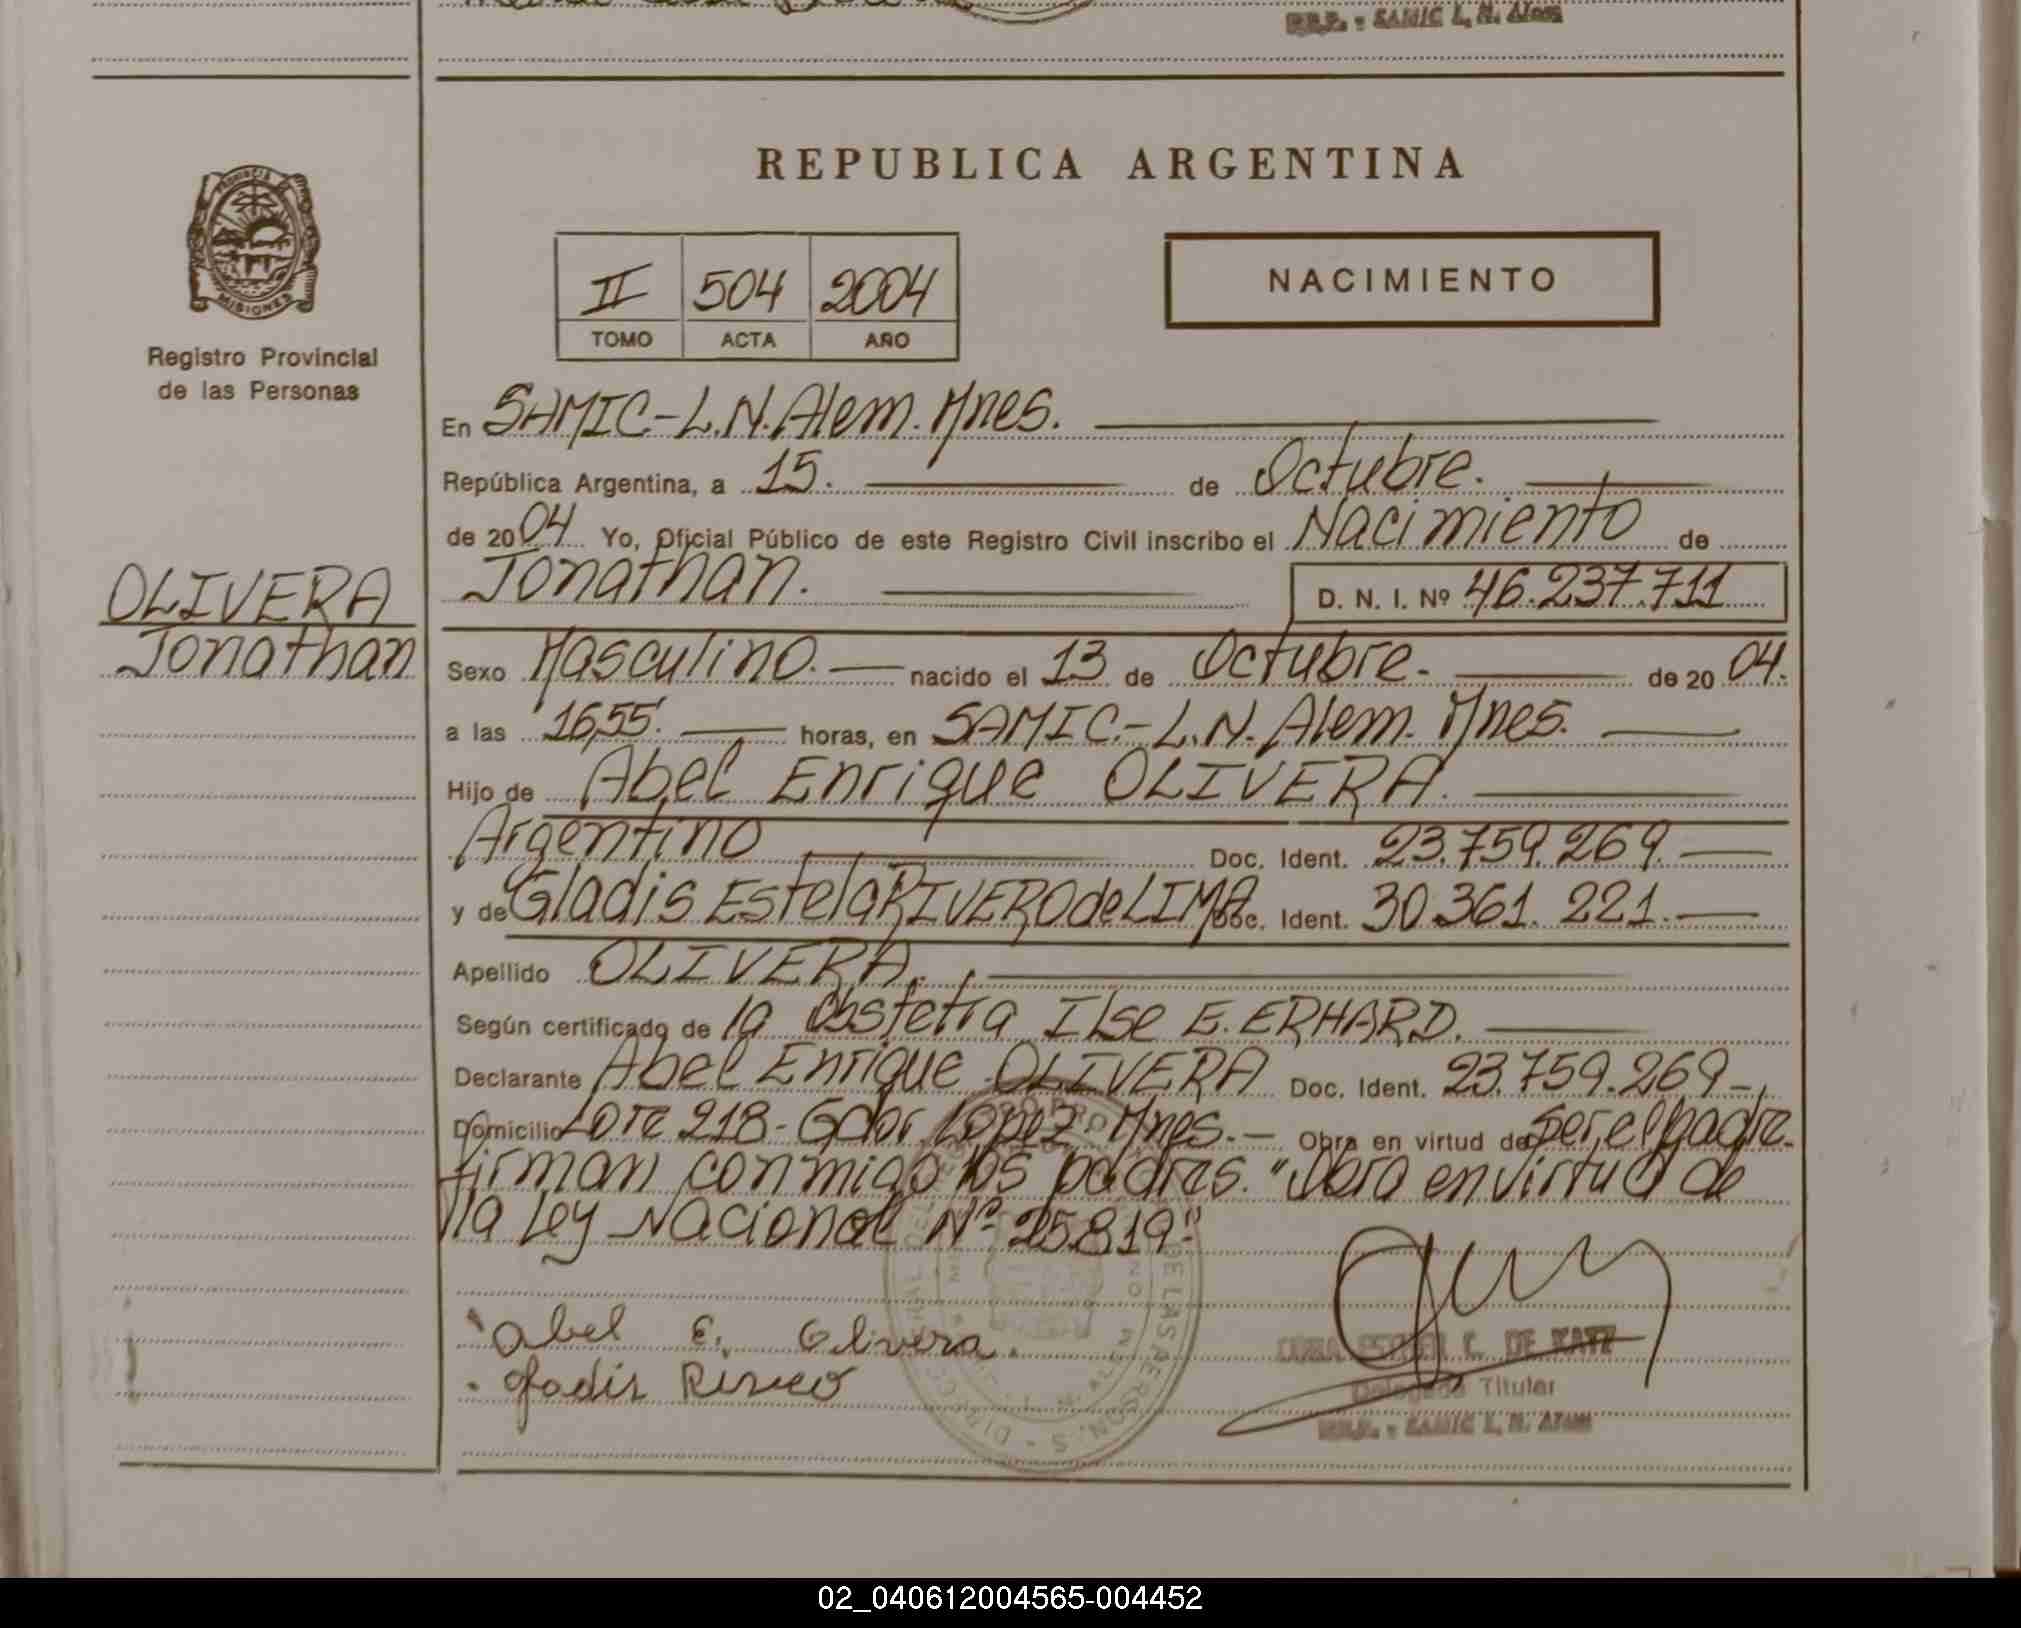 SAMIC L. N. Alem
REPUBLICA ARGENTINA
PROVINCIA DE
MISIONES
Registro Provincial
de las Personas
II 504 2004
TOMO ACTA AÑO
NACIMIENTO
En SAMIC-L.N.Alem. Mnes.
República Argentina, a 15. de Octubre.
de 2004 Yo, Oficial Público de este Registro Civil inscribo el Nacimiento de
Jonathan. D. N. I. Nº 46.237.711
OLIVERA
Jonathan
Sexo Masculino. nacido el 13 de Octubre. de 20 04.
a las 16,55. horas, en SAMIC.-L.N. Alem. Mnes.
Hijo de Abel Enrique OLIVERA.
Argentino Doc. Ident. 23.759.269.
y de Gladis Estela RIVERO de LIMA Doc. Ident. 30.361.221.
Apellido OLIVERA.
Según certificado de la Obstetra Ilse E. ERHARD.
Declarante Abel Enrique OLIVERA Doc. Ident. 23.759.269-
Domicilio Lote 218- Gdor. López- Mnes.- Obra en virtud de ser el padre.
firman conmigo los padres. "Obra en virtud de
la Ley Nacional Nº 25.819"
Abel E. Olivera.
Gladis Rivero
C. DE KATZ
Delegada Titular
SAMIC L. N. Alem
02_040612004565-004452